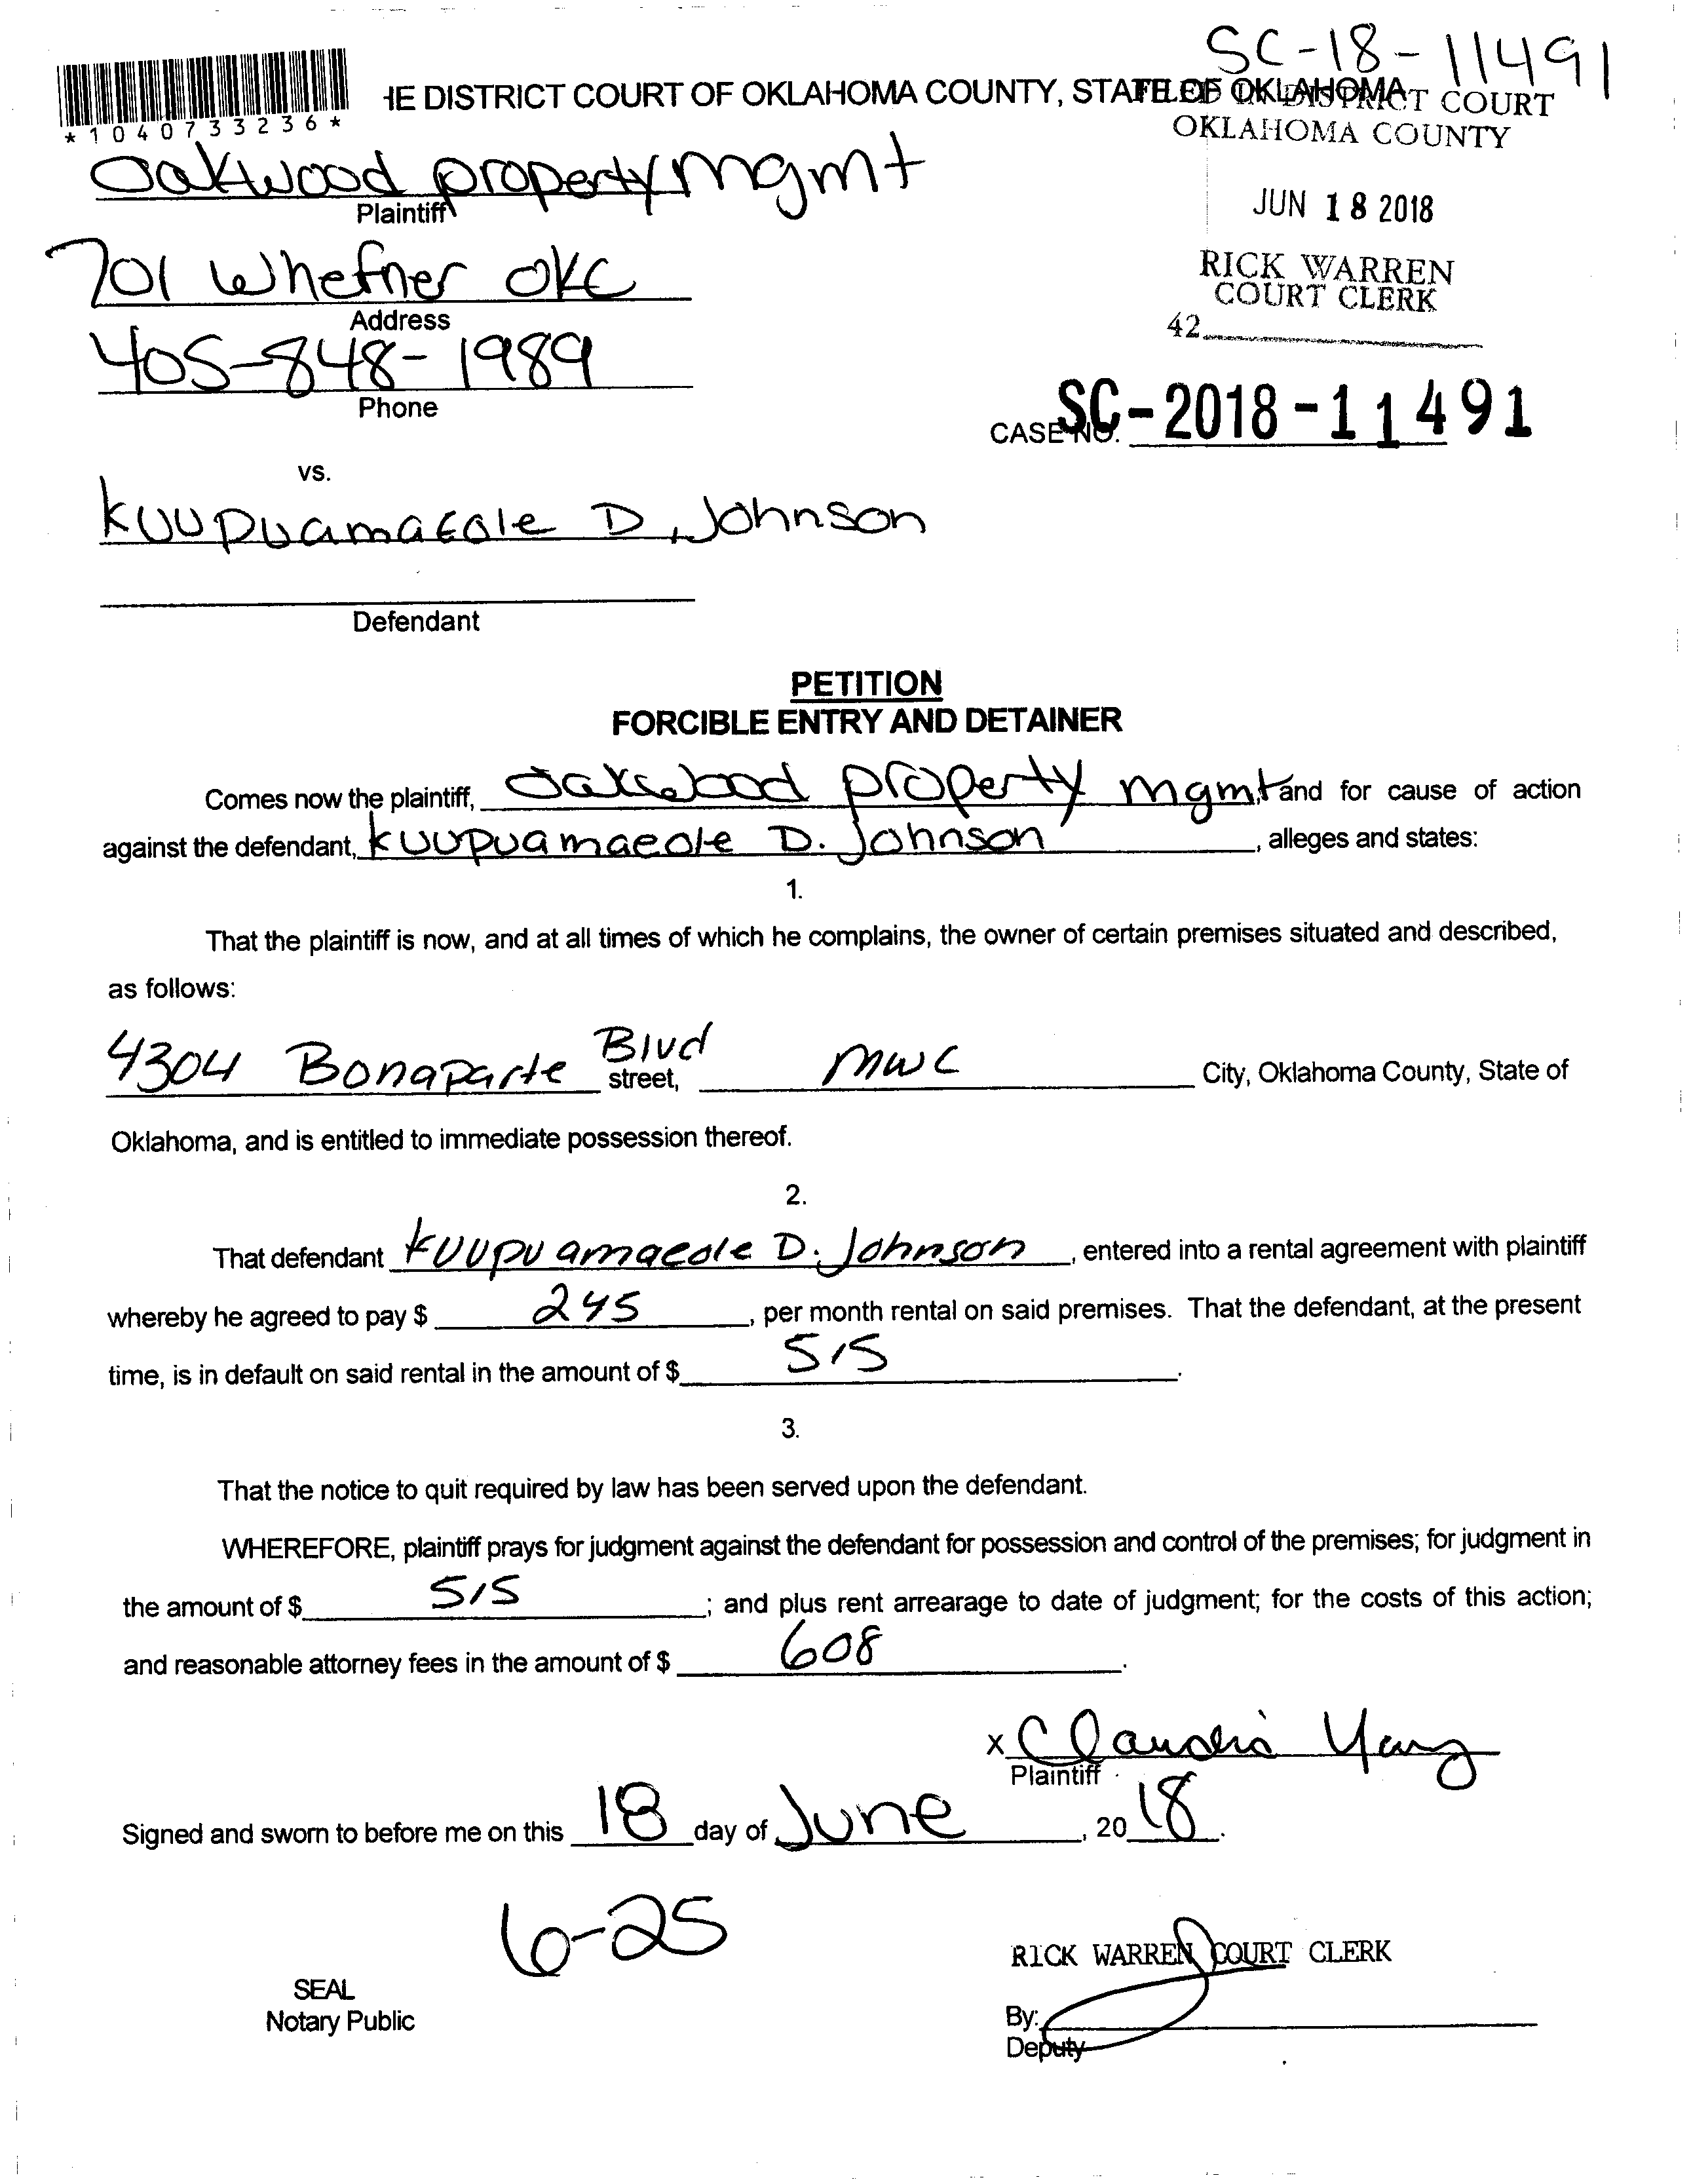 SC-18-11491
IE DISTRICT COURT OF OKLAHOMA COUNTY, STATE OF OKLAHOMA
FILED IN DISTRICT COURT
OKLAHOMA COUNTY
*1040733236*
Oakwood property mgmt
Plaintiff
JUN 18 2018
701 Whefner OKC
Address
RICK WARREN
COURT CLERK
42
405-848-1989
Phone
CASE NO. SC-2018-11491
vs.
Kuupuamaeole D. Johnson
Defendant
PETITION
FORCIBLE ENTRY AND DETAINER
Comes now the plaintiff, Oakwood property mgmt and for cause of action
against the defendant, Kuupuamaeole D. Johnson, alleges and states:
1.
That the plaintiff is now, and at all times of which he complains, the owner of certain premises situated and described,
as follows:
4304 Bonaparte Blvd street, MWC City, Oklahoma County, State of
Oklahoma, and is entitled to immediate possession thereof.
2.
That defendant Kuupuamaeole D. Johnson, entered into a rental agreement with plaintiff
whereby he agreed to pay $ 245, per month rental on said premises. That the defendant, at the present
time, is in default on said rental in the amount of $ 515.
3.
That the notice to quit required by law has been served upon the defendant.
WHEREFORE, plaintiff prays for judgment against the defendant for possession and control of the premises; for judgment in
the amount of $ 515; and plus rent arrearage to date of judgment; for the costs of this action;
and reasonable attorney fees in the amount of $ 608.
x Claudia Yang
Plaintiff
Signed and sworn to before me on this 18 day of June, 2018.
6-25
RICK WARREN COURT CLERK
SEAL
Notary Public
By:
Deputy